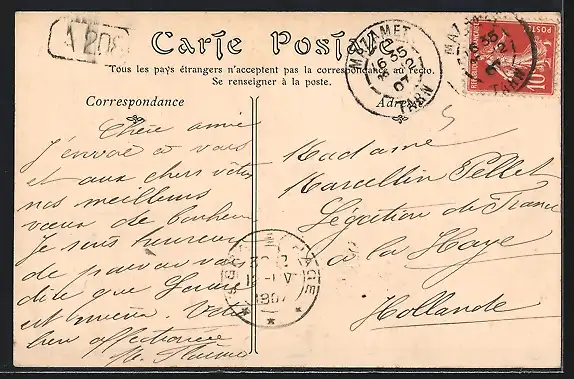 A 208
Carte Postale
Tous les pays étrangers n'acceptent pas la correspondance au recto.
Se renseigner à la poste.
Correspondance
Adresse
MAZAMET
16 35
21
07
TARN
MAZAMET
16 35
21
07
TARN
10
Chère amie
J'envoie à vous
et aux chers vôtres
nos meilleurs
vœux de bonheur
Je suis heureuse
de pouvoir vous
dire que Louis
est
bien affectionnée
Madame
Marcellin Pellet
Légation de France
à la Haye
Hollande
1907